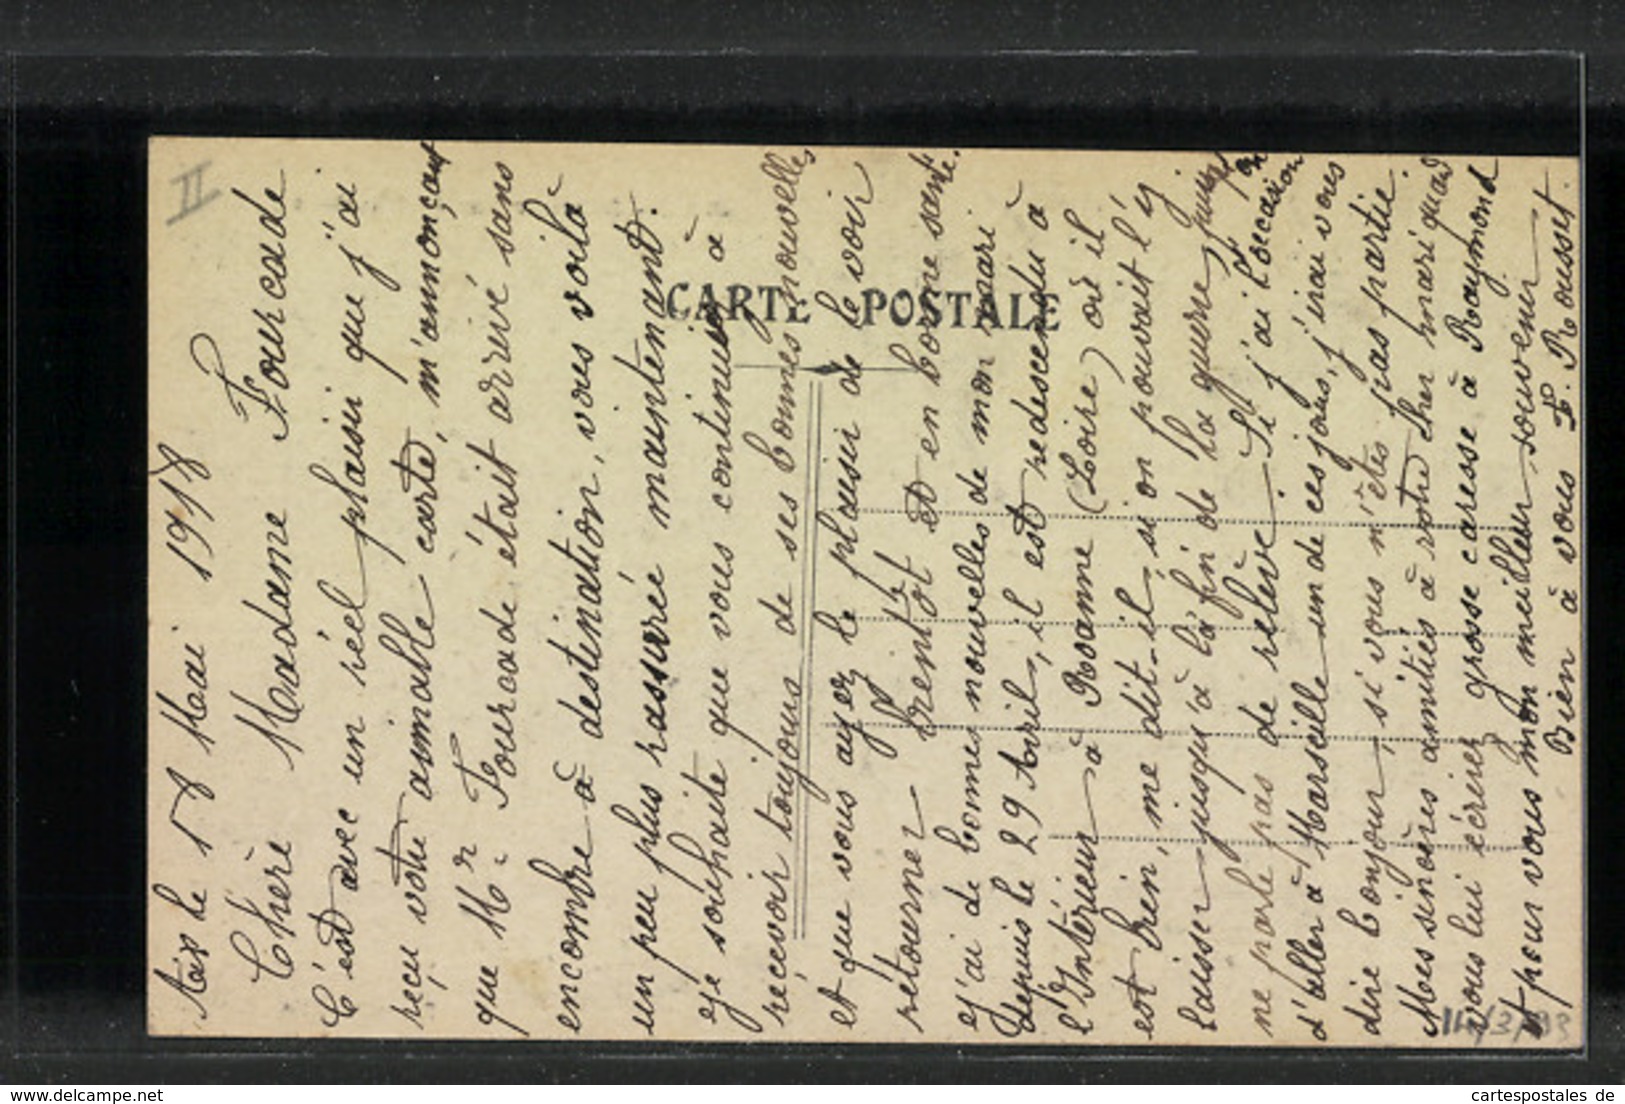 Aix le 18 Mai 1918
Chère Madame Fourcade
C'est avec un réel plaisir que j'ai
reçu votre aimable carte, m'annonçant
que Mr. Fourcade était arrivé sans
encombre à destination, vous voilà
un peu plus rassurée maintenant.
et je souhaite que vous continuez à
recevoir toujours de ses bonnes nouvelles
et que vous ayez le plaisir de le voir
rétourner bientôt et en bonne santé.
j'ai de bonnes nouvelles de mon mari
depuis le 29 Avril, il est redescendu à
l'Intérieur à Roanne (Loire) où il
est bien, me dit-il, si on pouvait l'y
laisser jusqu'à la fin de la guerre,
ne parle pas de relève. Si j'ai l'occasion
d'aller à Marseille un de ces jours, j'irai vous
dire bonjour, si vous n'êtes pas partie.
Mes sincères amitiés à votre cher mari quand
vous lui écrirez grosse caresse à Raymond
et pour vous mon meilleur souvenir
Bien à vous F. Rousset
CARTE POSTALE
II
cartespostales de